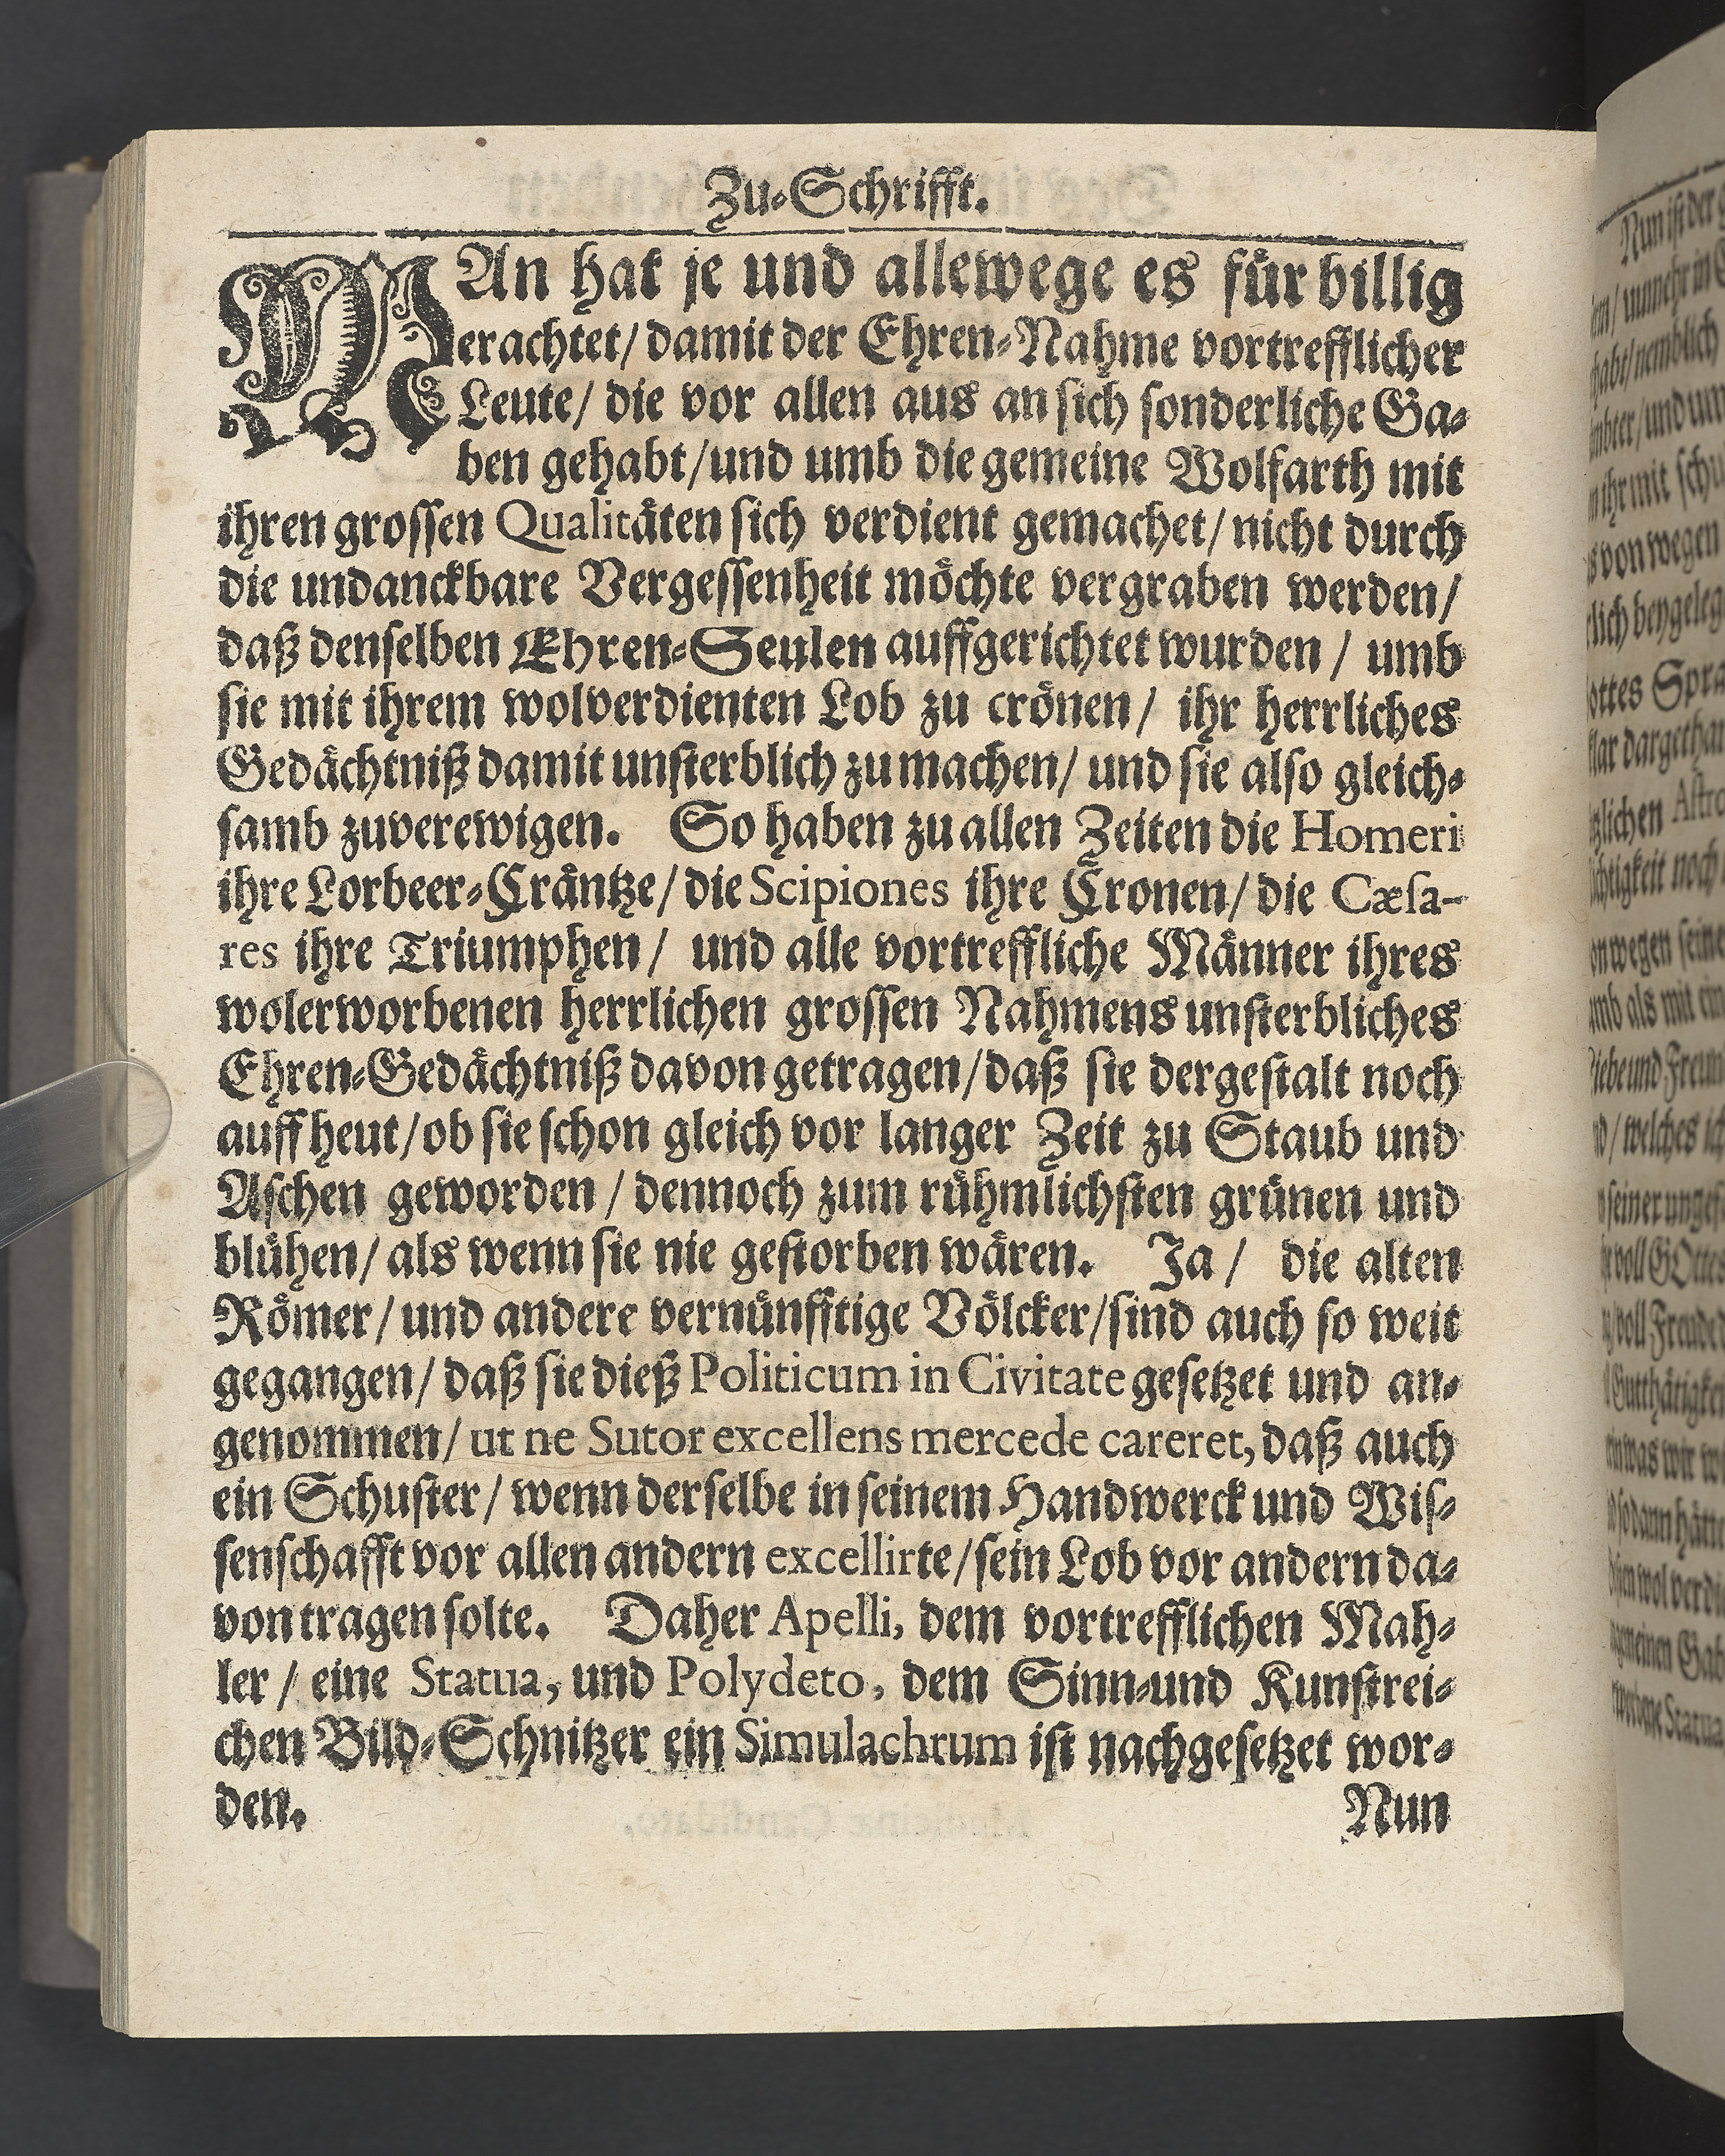 Zu-Schrifft.
MAn hat je und allewege es für billig
erachtet/ damit der Ehren-Nahme vortrefflicher
Leute/ die vor allen aus an sich sonderliche Ga-
ben gehabt/ und umb die gemeine Wolfarth mit
ihren grossen Qualitäten sich verdient gemachet/ nicht durch
die undanckbare Vergessenheit möchte vergraben werden/
daß denselben Ehren-Seulen auffgerichtet wurden / umb
sie mit ihrem wolverdienten Lob zu crönen/ ihr herrliches
Gedächtniß damit unsterblich zu machen/ und sie also gleich-
samb zuverewigen. So haben zu allen Zeiten die Homeri
ihre Lorbeer-Cräntze/ die Scipiones ihre Cronen/ die Cæsa-
res ihre Triumphen/ und alle vortreffliche Männer ihres
wolerworbenen herrlichen grossen Nahmens unsterbliches
Ehren-Gedächtniß davon getragen/ daß sie dergestalt noch
auff heut/ ob sie schon gleich vor langer Zeit zu Staub und
Aschen geworden / dennoch zum rühmlichsten grünen und
blühen/ als wenn sie nie gestorben wären. Ja/ die alten
Römer/ und andere vernünfftige Völcker/ sind auch so weit
gegangen/ daß sie dieß Politicum in Civitate gesetzet und an-
genommen/ ut ne Sutor excellens mercede careret, daß auch
ein Schuster/ wenn derselbe in seinem Handwerck und Wis-
senschafft vor allen andern excellirte/ sein Lob vor andern da-
von tragen solte. Daher Apelli, dem vortrefflichen Mah-
ler / eine Statua, und Polydeto, dem Sinn-und Kunstrei-
chen Bild-Schnitzer ein Simulachrum ist nachgesetzet wor-
den. Nun